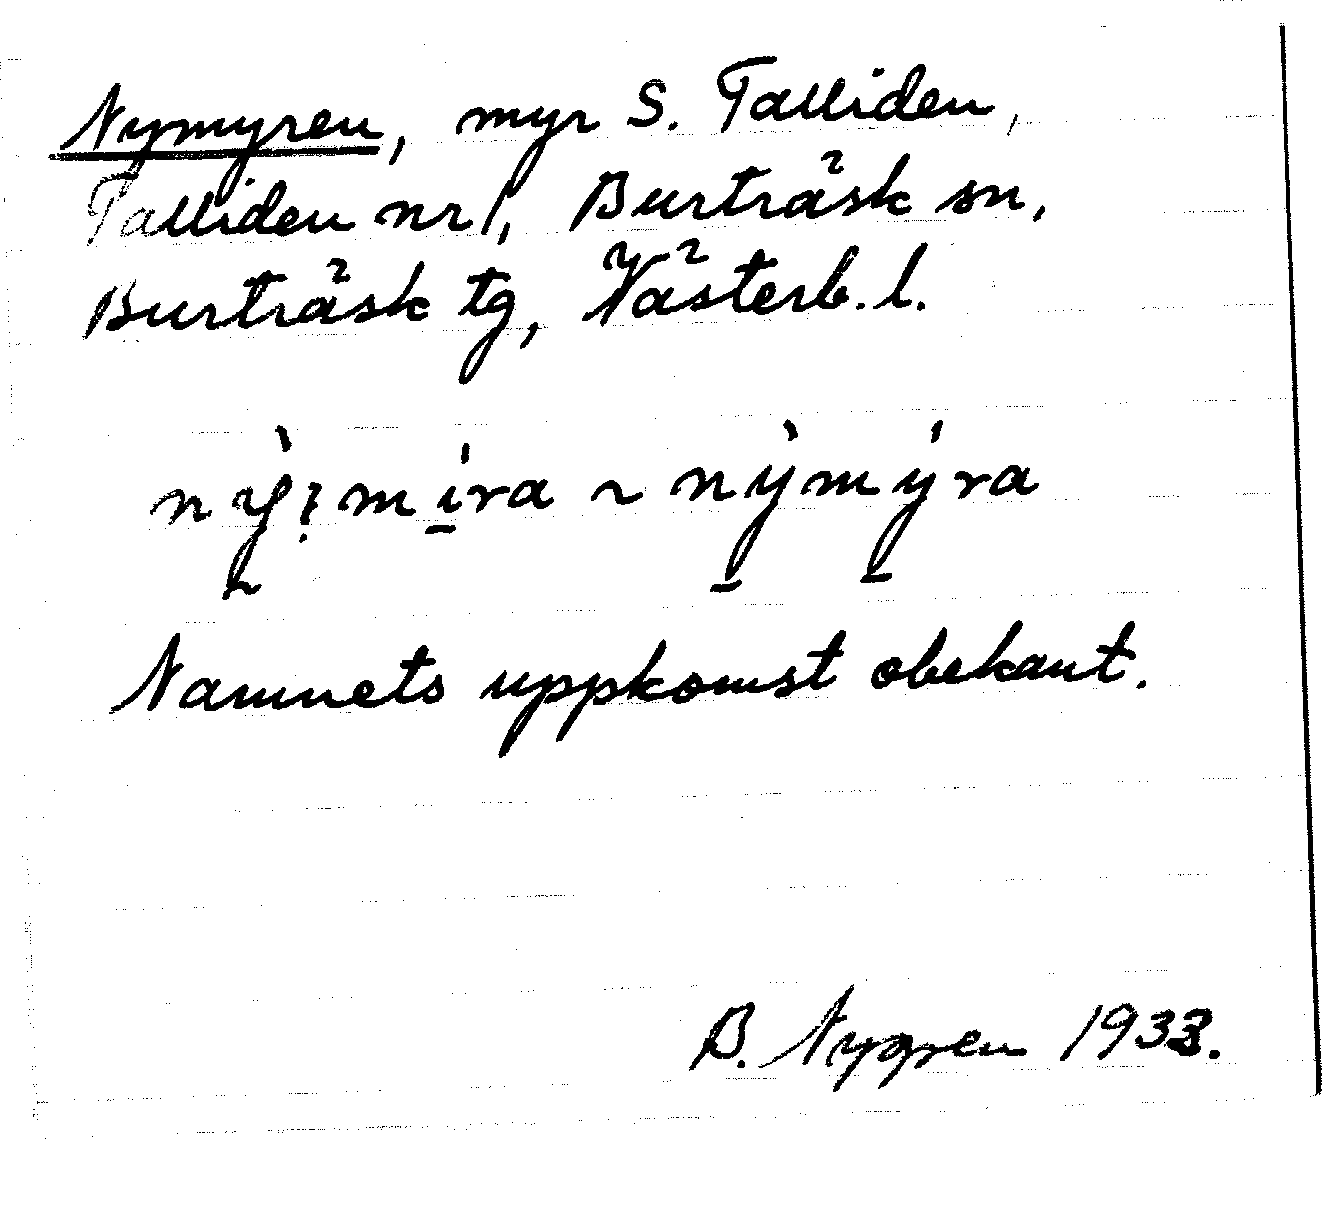 Nymyren, myr S. Talliden,
Talliden nr 1, Burträsk sn,
Burträsk tg, Västerb. l.
nỳ̰꞉mi̱ra ~ nỳ̱mý̱ra
Namnets uppkomst obekant.
B. Nygren 1933.